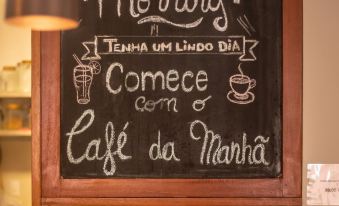 TENHA UM LINDO DIA
Começe
com o
Café da Manhã